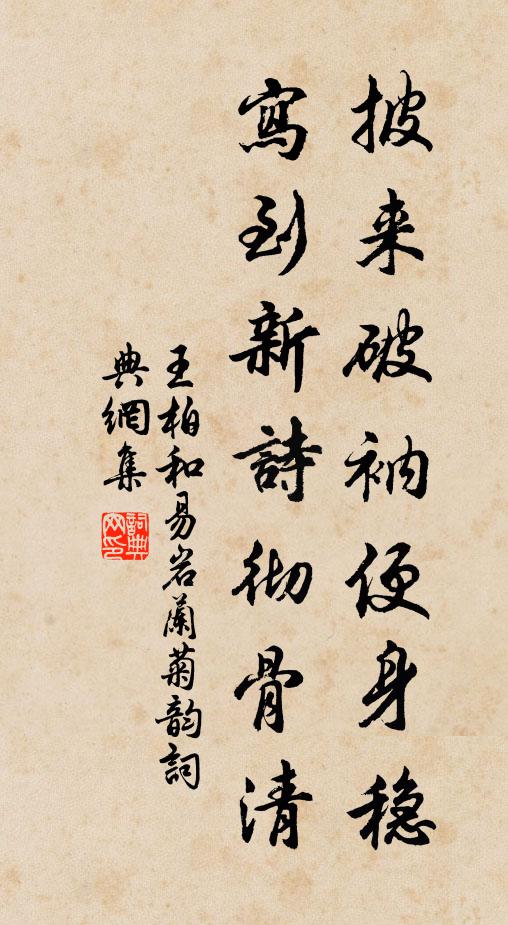 披来破衲便身稳
寫到新詩彻骨清
王柏和易岩蘭菊韵詞
典網集
詞典网印